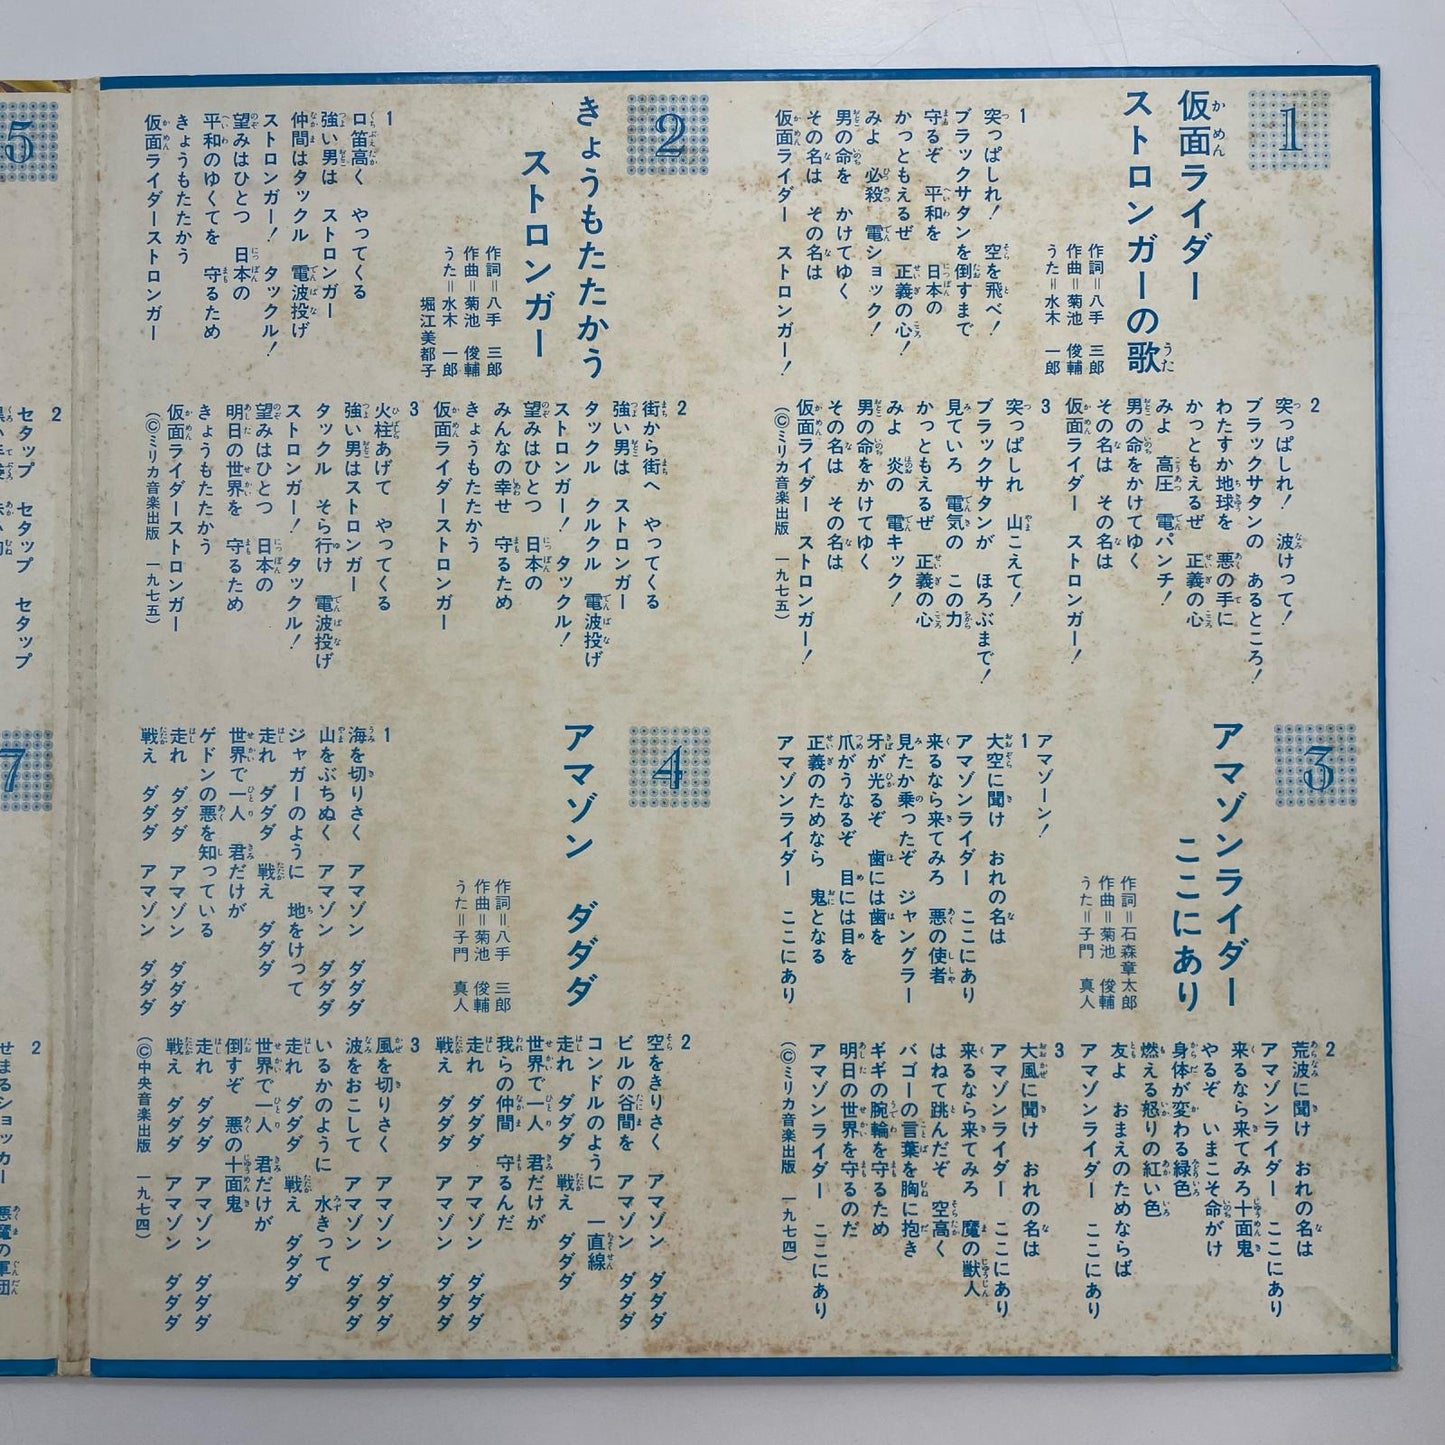 1
仮面ライダー
ストロンガーの歌
作詞＝八手　三郎
作曲＝菊池　俊輔
うた＝水木　一郎
1
突っぱしれ！　空を飛べ！
ブラックサタンを倒すまで
守るぞ　平和を　日本の
かっともえるぜ　正義の心！
みよ　必殺　電ショック！
男の命を　かけてゆく
その名は　その名は
仮面ライダー　ストロンガー！
2
突っぱしれ！　波けって！
ブラックサタンの　あるところ！
わたすか地球を　悪の手に
かっともえるぜ　正義の心
みよ　高圧　電パンチ！
男の命をかけてゆく
その名は　その名は
仮面ライダー　ストロンガー！
3
突っぱしれ　山こえて！
ブラックサタンが　ほろぶまで！
見ていろ　電気の　この力
かっともえるぜ　正義の心
みよ　炎の　電キック！
男の命をかけてゆく
その名は　その名は
仮面ライダー　ストロンガー！
（©ミリカ音楽出版　一九七五）
2
きょうもたたかう
ストロンガー
作詞＝八手　三郎
作曲＝菊池　俊輔
うた＝水木　一郎
堀江美都子
1
口笛高く　やってくる
強い男は　ストロンガー
仲間はタックル　電波投げ
ストロンガー！　タックル！
望みはひとつ　日本の
平和のゆくてを　守るため
きょうもたたかう
仮面ライダーストロンガー
2
街から街へ　やってくる
強い男は　ストロンガー
タックル　クルクル　電波投げ
ストロンガー！　タックル！
望みはひとつ　日本の
みんなの幸せ　守るため
きょうもたたかう
仮面ライダーストロンガー
3
火柱あげて　やってくる
強い男はストロンガー
タックル　そら行け　電波投げ
ストロンガー！　タックル！
望みはひとつ　日本の
明日の世界を　守るため
きょうもたたかう
仮面ライダーストロンガー
（©ミリカ音楽出版　一九七五）
3
アマゾンライダー
ここにあり
作詞＝石森章太郎
作曲＝菊池　俊輔
うた＝子門　真人
アマゾーン！
1
大空に聞け　おれの名は
アマゾンライダー　ここにあり
来るなら来てみろ　悪の使者
見たか乗ったぞ　ジャングラー
牙が光るぞ　歯には歯を
爪がうなるぞ　目には目を
正義のためなら　鬼となる
アマゾンライダー　ここにあり
2
荒波に聞け　おれの名は
アマゾンライダー　ここにあり
来るなら来てみろ十面鬼
やるぞ　いまこそ命がけ
身体が変わる緑色
燃える怒りの紅い色
友よ　おまえのためならば
アマゾンライダー　ここにあり
3
大風に聞け　おれの名は
アマゾンライダー　ここにあり
来るなら来てみろ　魔の獣人
はねて跳んだぞ　空高く
バゴーの言葉を胸に抱き
ギギの腕輪を守るため
明日の世界を守るのだ
アマゾンライダー　ここにあり
（©ミリカ音楽出版　一九七四）
4
アマゾン　ダダダ
作詞＝八手　三郎
作曲＝菊池　俊輔
うた＝子門　真人
1
海を切りさく　アマゾン　ダダダ
山をぶちぬく　アマゾン　ダダダ
ジャガーのように　地をけって
走れ　ダダダ　戦え　ダダダ
世界で一人　君だけが
ゲドンの悪を知っている
走れ　ダダダ　アマゾン　ダダダ
戦え　ダダダ　アマゾン　ダダダ
2
空をきりさく　アマゾン　ダダダ
ビルの谷間を　アマゾン　ダダダ
コンドルのように　一直線
走れ　ダダダ　戦え　ダダダ
世界で一人　君だけが
我らの仲間　守るんだ
走れ　ダダダ　アマゾン　ダダダ
戦え　ダダダ　アマゾン　ダダダ
3
風を切りさく　アマゾン　ダダダ
波をおこして　アマゾン　ダダダ
いるかのように　水きって
走れ　ダダダ　戦え　ダダダ
世界で一人　君だけが
倒すぞ　悪の十面鬼
走れ　ダダダ　アマゾン　ダダダ
戦え　ダダダ　アマゾン　ダダダ
（©中央音楽出版　一九七四）
5
2
セタップ　セタップ　セタップ
7
2
せまるショッカー　悪魔の軍団